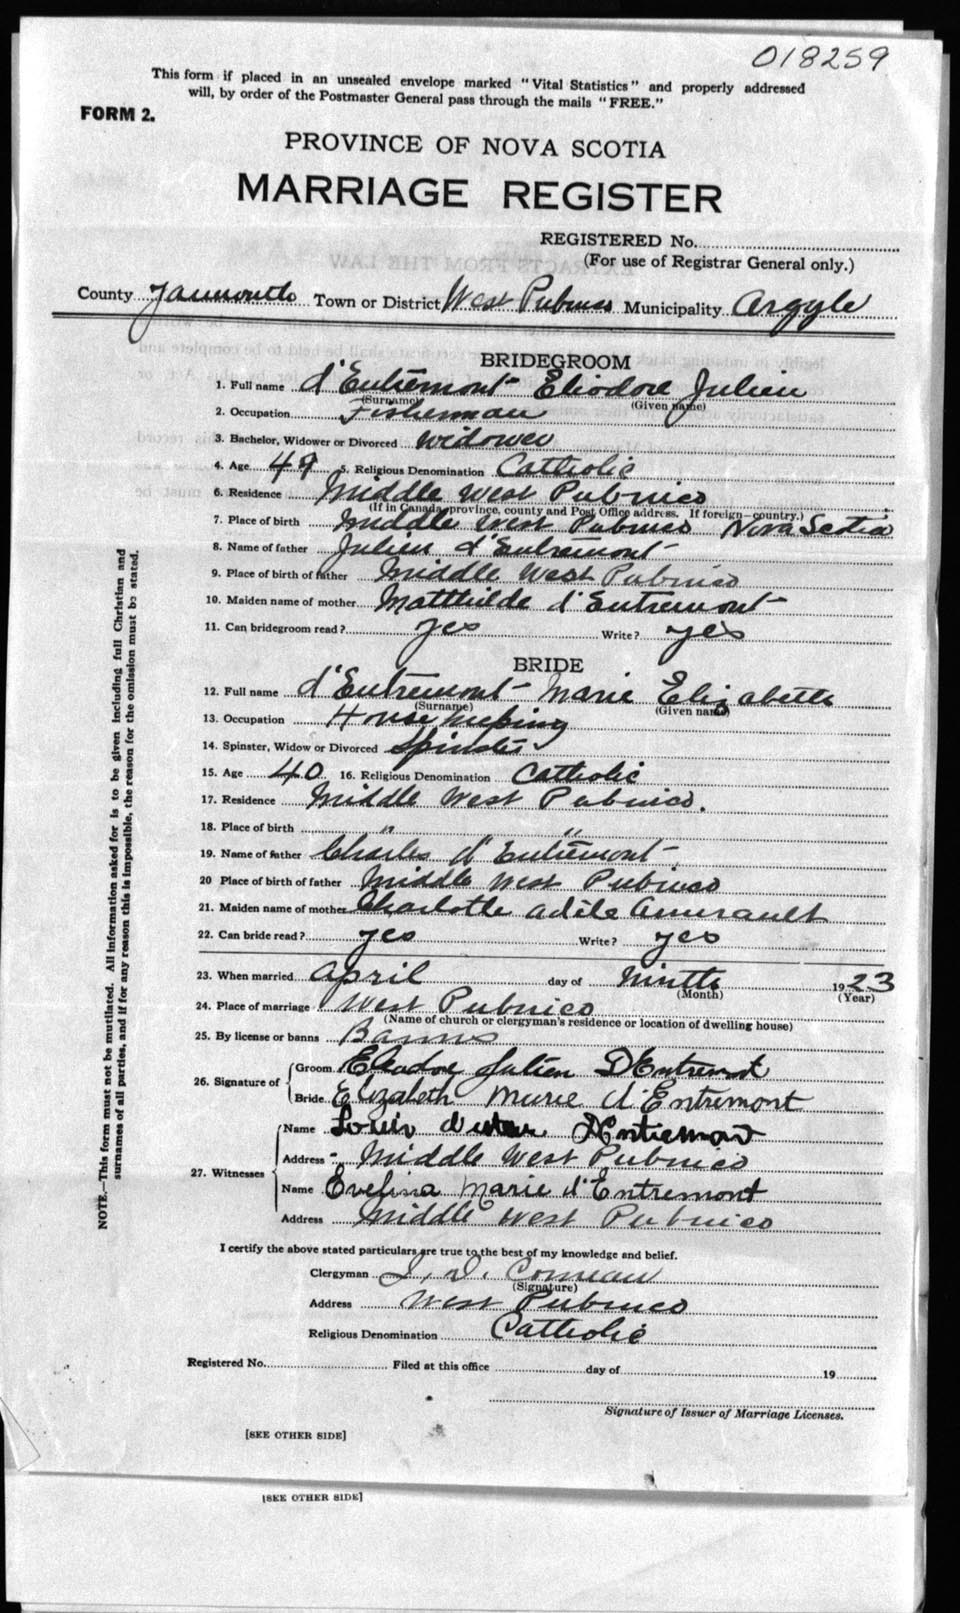 018259
This form if placed in an unsealed envelope marked "Vital Statistics" and properly addressed
will, by order of the Postmaster General pass through the mails "FREE."
FORM 2.
PROVINCE OF NOVA SCOTIA
MARRIAGE REGISTER
REGISTERED No.
(For use of Registrar General only.)
County Yarmouth Town or District West Pubnico Municipality Argyle
BRIDEGROOM
1. Full name d'Entremont Eliodore Julien
(Surname) (Given name)
2. Occupation Fisherman
3. Bachelor, Widower or Divorced Widower
4. Age 49 5. Religious Denomination Catholic
6. Residence Middle West Pubnico
(If in Canada, province, county and Post Office address. If foreign—country.)
7. Place of birth Middle West Pubnico Nova Scotia
8. Name of father Julien d'Entremont
9. Place of birth of father Middle West Pubnico
10. Maiden name of mother Matthilde d'Entremont
11. Can bridegroom read? yes Write? yes
BRIDE
12. Full name d'Entremont Marie Elizabeth
(Surname) (Given name)
13. Occupation House keeping
14. Spinster, Widow or Divorced Spinster
15. Age 40 16. Religious Denomination Catholic
17. Residence Middle West Pubnico.
18. Place of birth " "
19. Name of father Charles d'Entremont
20 Place of birth of father Middle West Pubnico
21. Maiden name of mother Charlotte Adèle Amirault
22. Can bride read? yes Write? yes
23. When married April day of Ninth 1923
(Month) (Year)
24. Place of marriage West Pubnico
(Name of church or clergyman's residence or location of dwelling house)
25. By license or banns Banns
26. Signature of Groom Eliodore Julien D'Entremont
Bride Elizabeth Marie d'Entremont
27. Witnesses Name Louis D'Entremont
Address Middle West Pubnico
Name Evelina Marie d'Entremont
Address Middle West Pubnico
I certify the above stated particulars are true to the best of my knowledge and belief.
Clergyman Comeau
(Signature)
Address West Pubnico
Religious Denomination Catholic
Registered No. Filed at this office day of 19
Signature of Issuer of Marriage Licenses.
[SEE OTHER SIDE]
[SEE OTHER SIDE]
NOTE.—This form must not be mutilated. All information asked for is to be given including full Christian and
surnames of all parties, and if for any reason this is impossible, the reason for the omission must be stated.